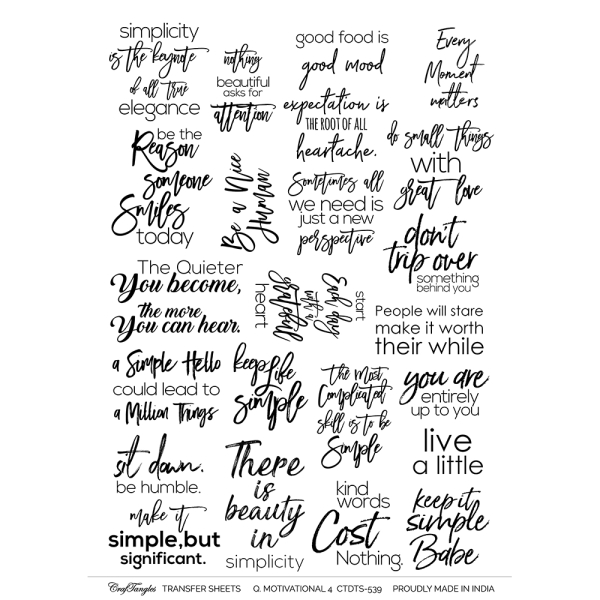 simplicity
is the keynote
of all true
elegance
nothing
beautiful
asks for
attention
good food is
good mood
Every
Moment
matters
expectation is
THE ROOT OF ALL
heartache.
be the
Reason
Someone
Smiles
today
Be a Nice
Human
do small things
with
great love
Sometimes all
we need is
just a new
perspective
don't
trip over
something
behind you
The Quieter
You become,
the more
You can hear.
start
Each day
with a
grateful
heart
People will stare
make it worth
their while
a Simple Hello
could lead to
a Million Things
keep Life
simple
the most
Complicated
skill is to be
Simple
you are
entirely
up to you
live
a little
sit down.
be humble.
There
is
beauty
in
simplicity
kind
words
Cost
Nothing.
keep it
simple
Babe
make it
simple,but
significant.
CrafTangles TRANSFER SHEETS Q. MOTIVATIONAL 4 CTDTS-539 PROUDLY MADE IN INDIA